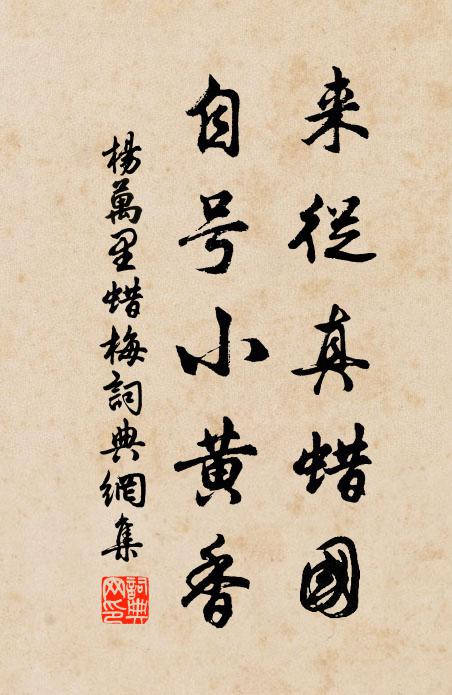 来從真蜡國
自号小黄香
楊萬里蜡梅詞典網集
詞典网印